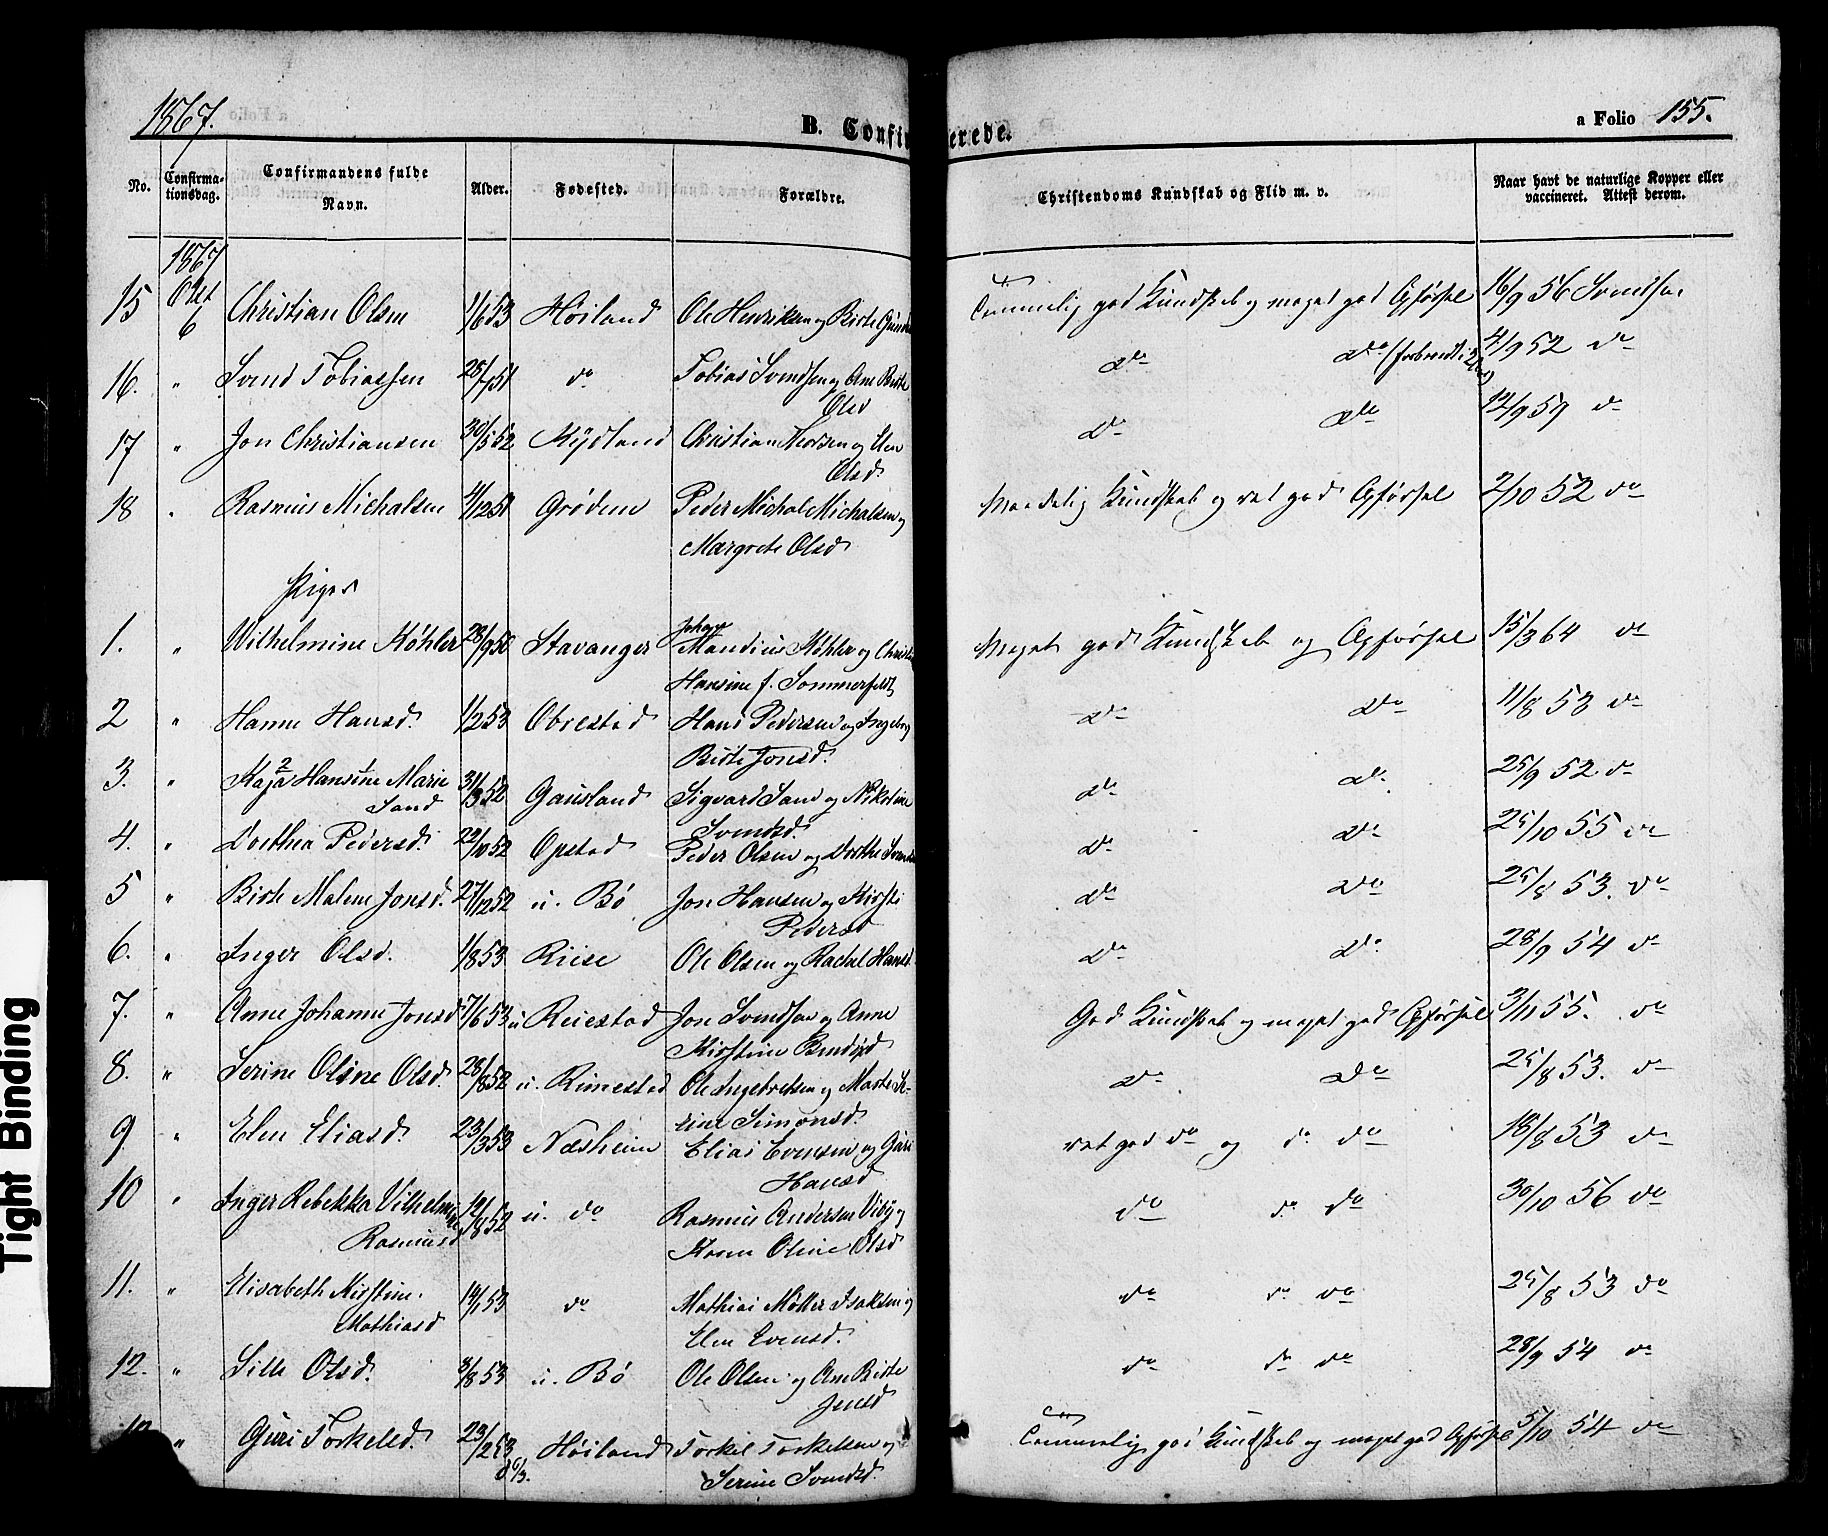 1867.
B. Confirmerede.
a Folio 155.
No. Confirmationsdag. Confirmandens fulde Navn. Alder. Fødested. Forældre. Christendoms Kundskab og Flid m. v. Naar havt de naturlige Kopper eller vaccineret. Attest derom.
1867
15 Okt 6 Christian Olsen 1/6 53 Høiland Ole Henriksen og Birte Temmelig god Kundskab og meget god Opførsel 16/9 56 Svendsen
16. " Svend Tobiassen 28/7 51 do Tobias Svendsen og Ane Birte Olsd do do 4/9 52 do
17 " Jon Christiansen 30/5 52 Kydland Christian og Olsd. do do 12/9 59 do
18 " Rasmus Michalsen 4/12 51 Grødem Peder Michal Michalsen og Margrete Olsd Maadelig Kundskab og ret god Opførsel 2/10 52 do
Piger
1. " Wilhelmine Køhler 28/9 50 Stavanger Johan Mandius Køhler og Hansine f. Sommerfeldt Meget god Kundskab og Opførsel 15/3 64 do
2 " Hanne Hansd. 1/2 53 Obrestad Hans Pedersen og Ingeborg Birte Jonsd. do do 11/8 53 do
3. " Kaja 2 Hansine 1 Marie Sand 31/3 52 Gausland Sigvard Sand og Nikoline Svendsd. do do 25/9 52 do
4. " Dorthea Pedersd. 22/10 52 Opstad Peder Olsen og Dorthe do do 25/10 55 do
5 " Birte Malene Jonsd. 27/12 52 u. Bø Jon Hansen og Kirsti Pedersd do do 25/8 53. do
6. " Inger Olsd. 1/8 53 Riise Ole Olsen og Rachel Hansd. do do 28/9 54 do
7. " Anne Johanne Jonsd 7/6 53 u Reiestad Jon Svendsen og Anne Kirstine God Kundskab og meget god Opførsel 3/11 55. do
8. " Serine Oline Olsd. 28/8 52 u. Rimestad Ole Ingebretsen og Marte Serine Simonsd. do do 25/8 53. do
9. " Elen Eliasd. 23/3 53 Næsheim Elias Evensen og Guri Hansd ret god do og do do 18/8 53 do
10 " Inger Rebekka Vilhelmine Rasmusd 12/8 52 u. do Rasmus Andersen Viby og Karen Oline Olsd do do do 30/10 56 do
11. " Elisabeth Kirstine Mathiasd 14/1 53 do Mathias Møller Isaksen og Elen Evensd. do do do 25/8 53 do
12. " Sille Olsd. 3/8 53 u. Bø Ole Olsen og Ane Birte Jensd do do do 28/9 54 do
13 " Guri Torkelsd. 23/2 53 Høiland Torkel Torkelsen og Serine Svendsd. Temmelig god Kundskab og meget god Opførsel 5/10 54 do
Tight Binding